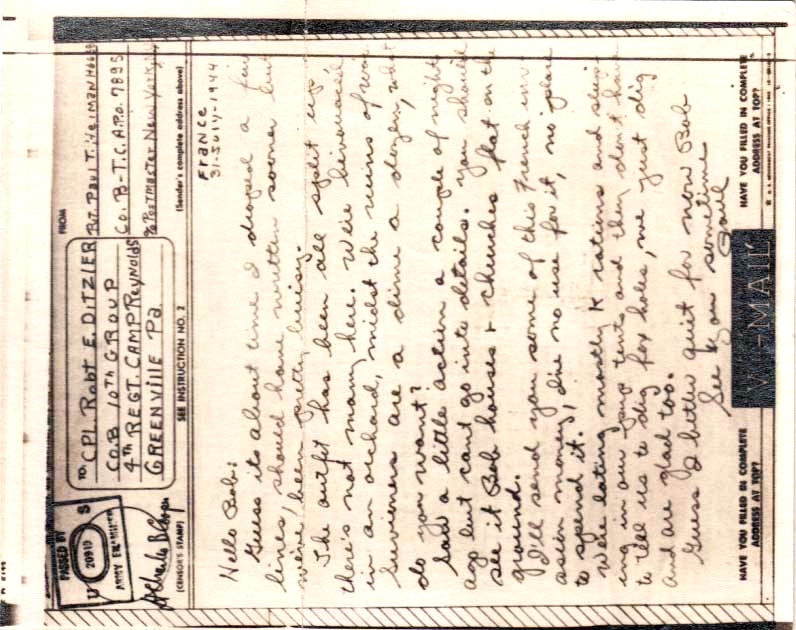 PASSED BY
U S
20910
ARMY EXAMINER
(CENSOR'S STAMP)
TO: CPL Robt E. DITZLER
CO. B 10TH GROUP
4TH REGT. CAMP Reynolds
GREENVILLE Pa.
SEE INSTRUCTION NO. 2
FROM
Pvt. Paul T.
Co. B - T.C. A.P.O. 7895
% Postmaster New York
(Sender's complete address above)
France
31-July-1944
Hello Bob:
Guess its about time I droped a few
lines, should have written sooner but
we've been pretty buisy.
The outfit has been all split up
there's not many here. We're bivouaced
in an orchard, midst the ruins of war.
Suvieners are a dime a dozen, what
do you want?
Saw a little action a couple of nights
ago but cant go into details. You should
see it Bob houses & churches flat on the
ground.
I'll send you some of this French inv-
asion money, Ive no use for it, no place
to spend it.
We're eating mostly K rations and sleep-
ing in our pup tents and they don't have
to tell us to dig fox holes, we just dig
and are glad too.
Guess I better quiet for now Bob
See you sometime
Paul
HAVE YOU FILLED IN COMPLETE
ADDRESS AT TOP?
V···—MAIL
HAVE YOU FILLED IN COMPLETE
ADDRESS AT TOP?